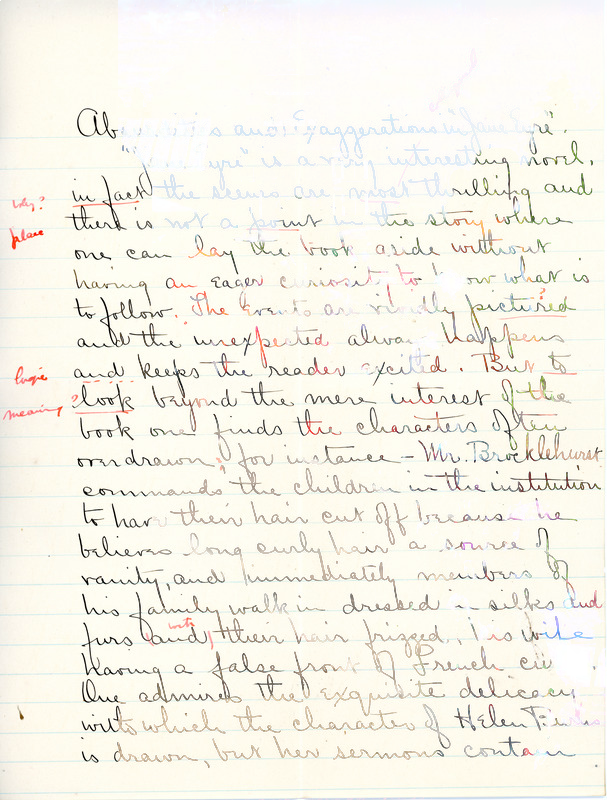 and Exaggerations in "Jane Eyre".
"Jane Eyre" is a very interesting novel,
in fact the scenes are most thrilling and
why?
there is not a point in the story where
place
one can lay the book aside without
having an eager curiosity to know what is
to follow. The Events are vividly pictured
and the unexpected always happens
and keeps the reader excited. But to
look beyond the mere interest of the
meaning?
book one finds the characters often
overdrawn, for instance - Mr. Brocklehurst
commands the children in the institution
to have their hair cut off because he
believes long curly hair a source of
vanity, and immediately members of
his family walk in dressed in silks and
with
furs (and) their hair frizzed, his wife
having a false front of French
One admires the exquisite delicacy
with which the character of Helen Burns
is drawn, but her sermons contain